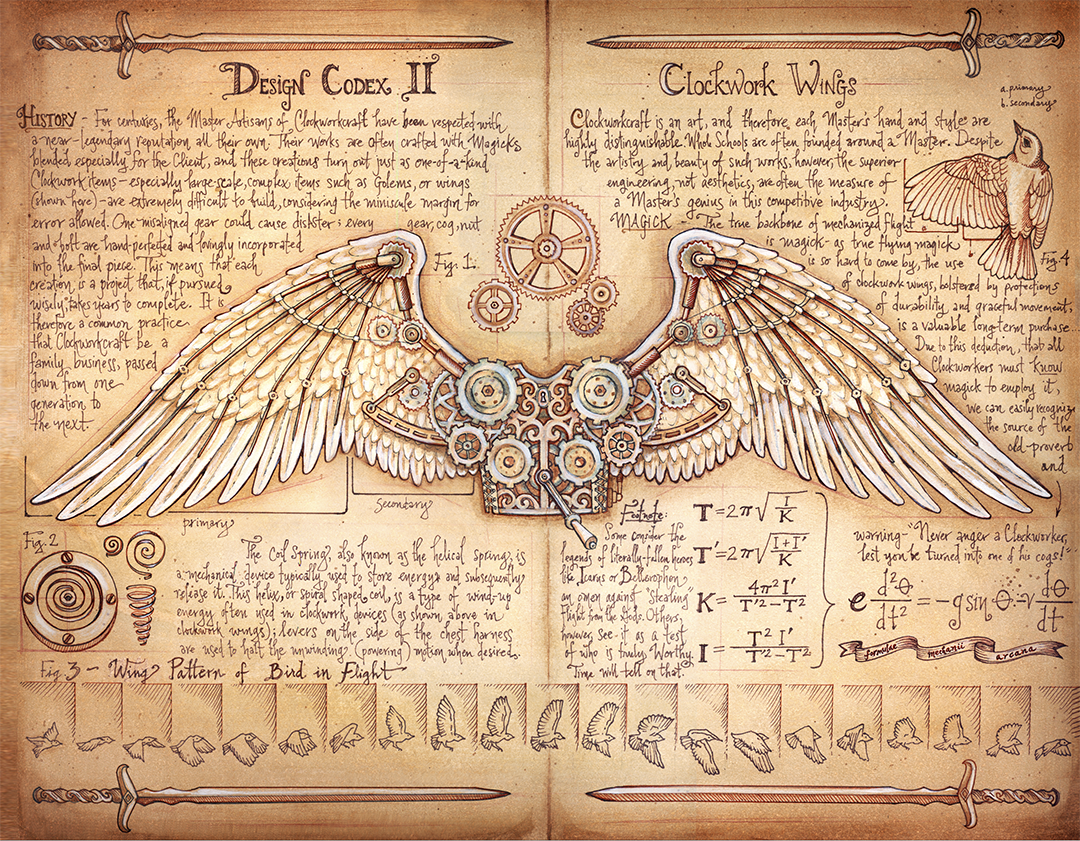 Design Codex II
History - For centuries, the Master Artisans of Clockworkcraft have been respected with
a near-legendary reputation, all their own. Their works are often crafted with Magicks
blended especially for the Client, and these creations turn out just as one-of-a-kind
Clockwork items - especially large-scale, complex items such as Golems, or wings
(shown here) - are extremely difficult to build, considering the miniscule margin for
error allowed. One misaligned gear could cause disaster; every gear, cog, nut
and bolt are hand-perfected and lovingly incorporated
into the final piece. This means that each
creation, is a project that, if pursued
wisely, takes years to complete. It is
therefore a common practice
that Clockworkcraft be a
family business, passed
down from one
generation to
the next.
Fig. 1.
primary
Secondary
Fig. 2
The Coil Spring, also known as the helical spring, is
a mechanical device typically used to store energy and subsequently
release it. This helix, or spiral shaped coil, is a type of wind-up
energy often used in clockwork devices (as shown above in
clockwork wings); levers on the side of the chest harness
are used to halt the unwinding (powering) motion when desired.
Clockwork Wings
a. primary
b. secondary
Clockworkcraft is an art, and therefore each Master's hand and style are
highly distinguishable. Whole Schools are often founded around a Master. Despite
the artistry and beauty of such works, however, the superior
engineering, not aesthetics, are often the measure of
a Master's genius in this competitive industry.
MAGICK - The true backbone of mechanized flight
is magick - as true flying magick
is so hard to come by, the use
of clockwork wings, bolstered by protections
of durability and graceful movement,
is a valuable long-term purchase.
Due to this deduction, that all
Clockworkers must know
magick to employ it,
we can easily recognize
the source of the
old proverb
and
Fig. 4
warning - "Never anger a Clockworker,
lest you be turned into one of his cogs!"
Footnote:
Some consider the
legends of literally-fallen heroes
like Icarus or Bellerophon
an omen against "stealing"
Flight from the Gods. Others,
however, see it as a test
of who is truly Worthy.
Time will tell on that.
T=2π√(I/K)
T'=2π√((I+I')/K)
K= 4π² I' / (T'² - T²)
I = T² I' / (T'² - T²)
d²θ/dt² = -g sin θ - ν dθ/dt
formulae mechanii arcana
Fig. 3 - Wing Pattern of Bird in Flight